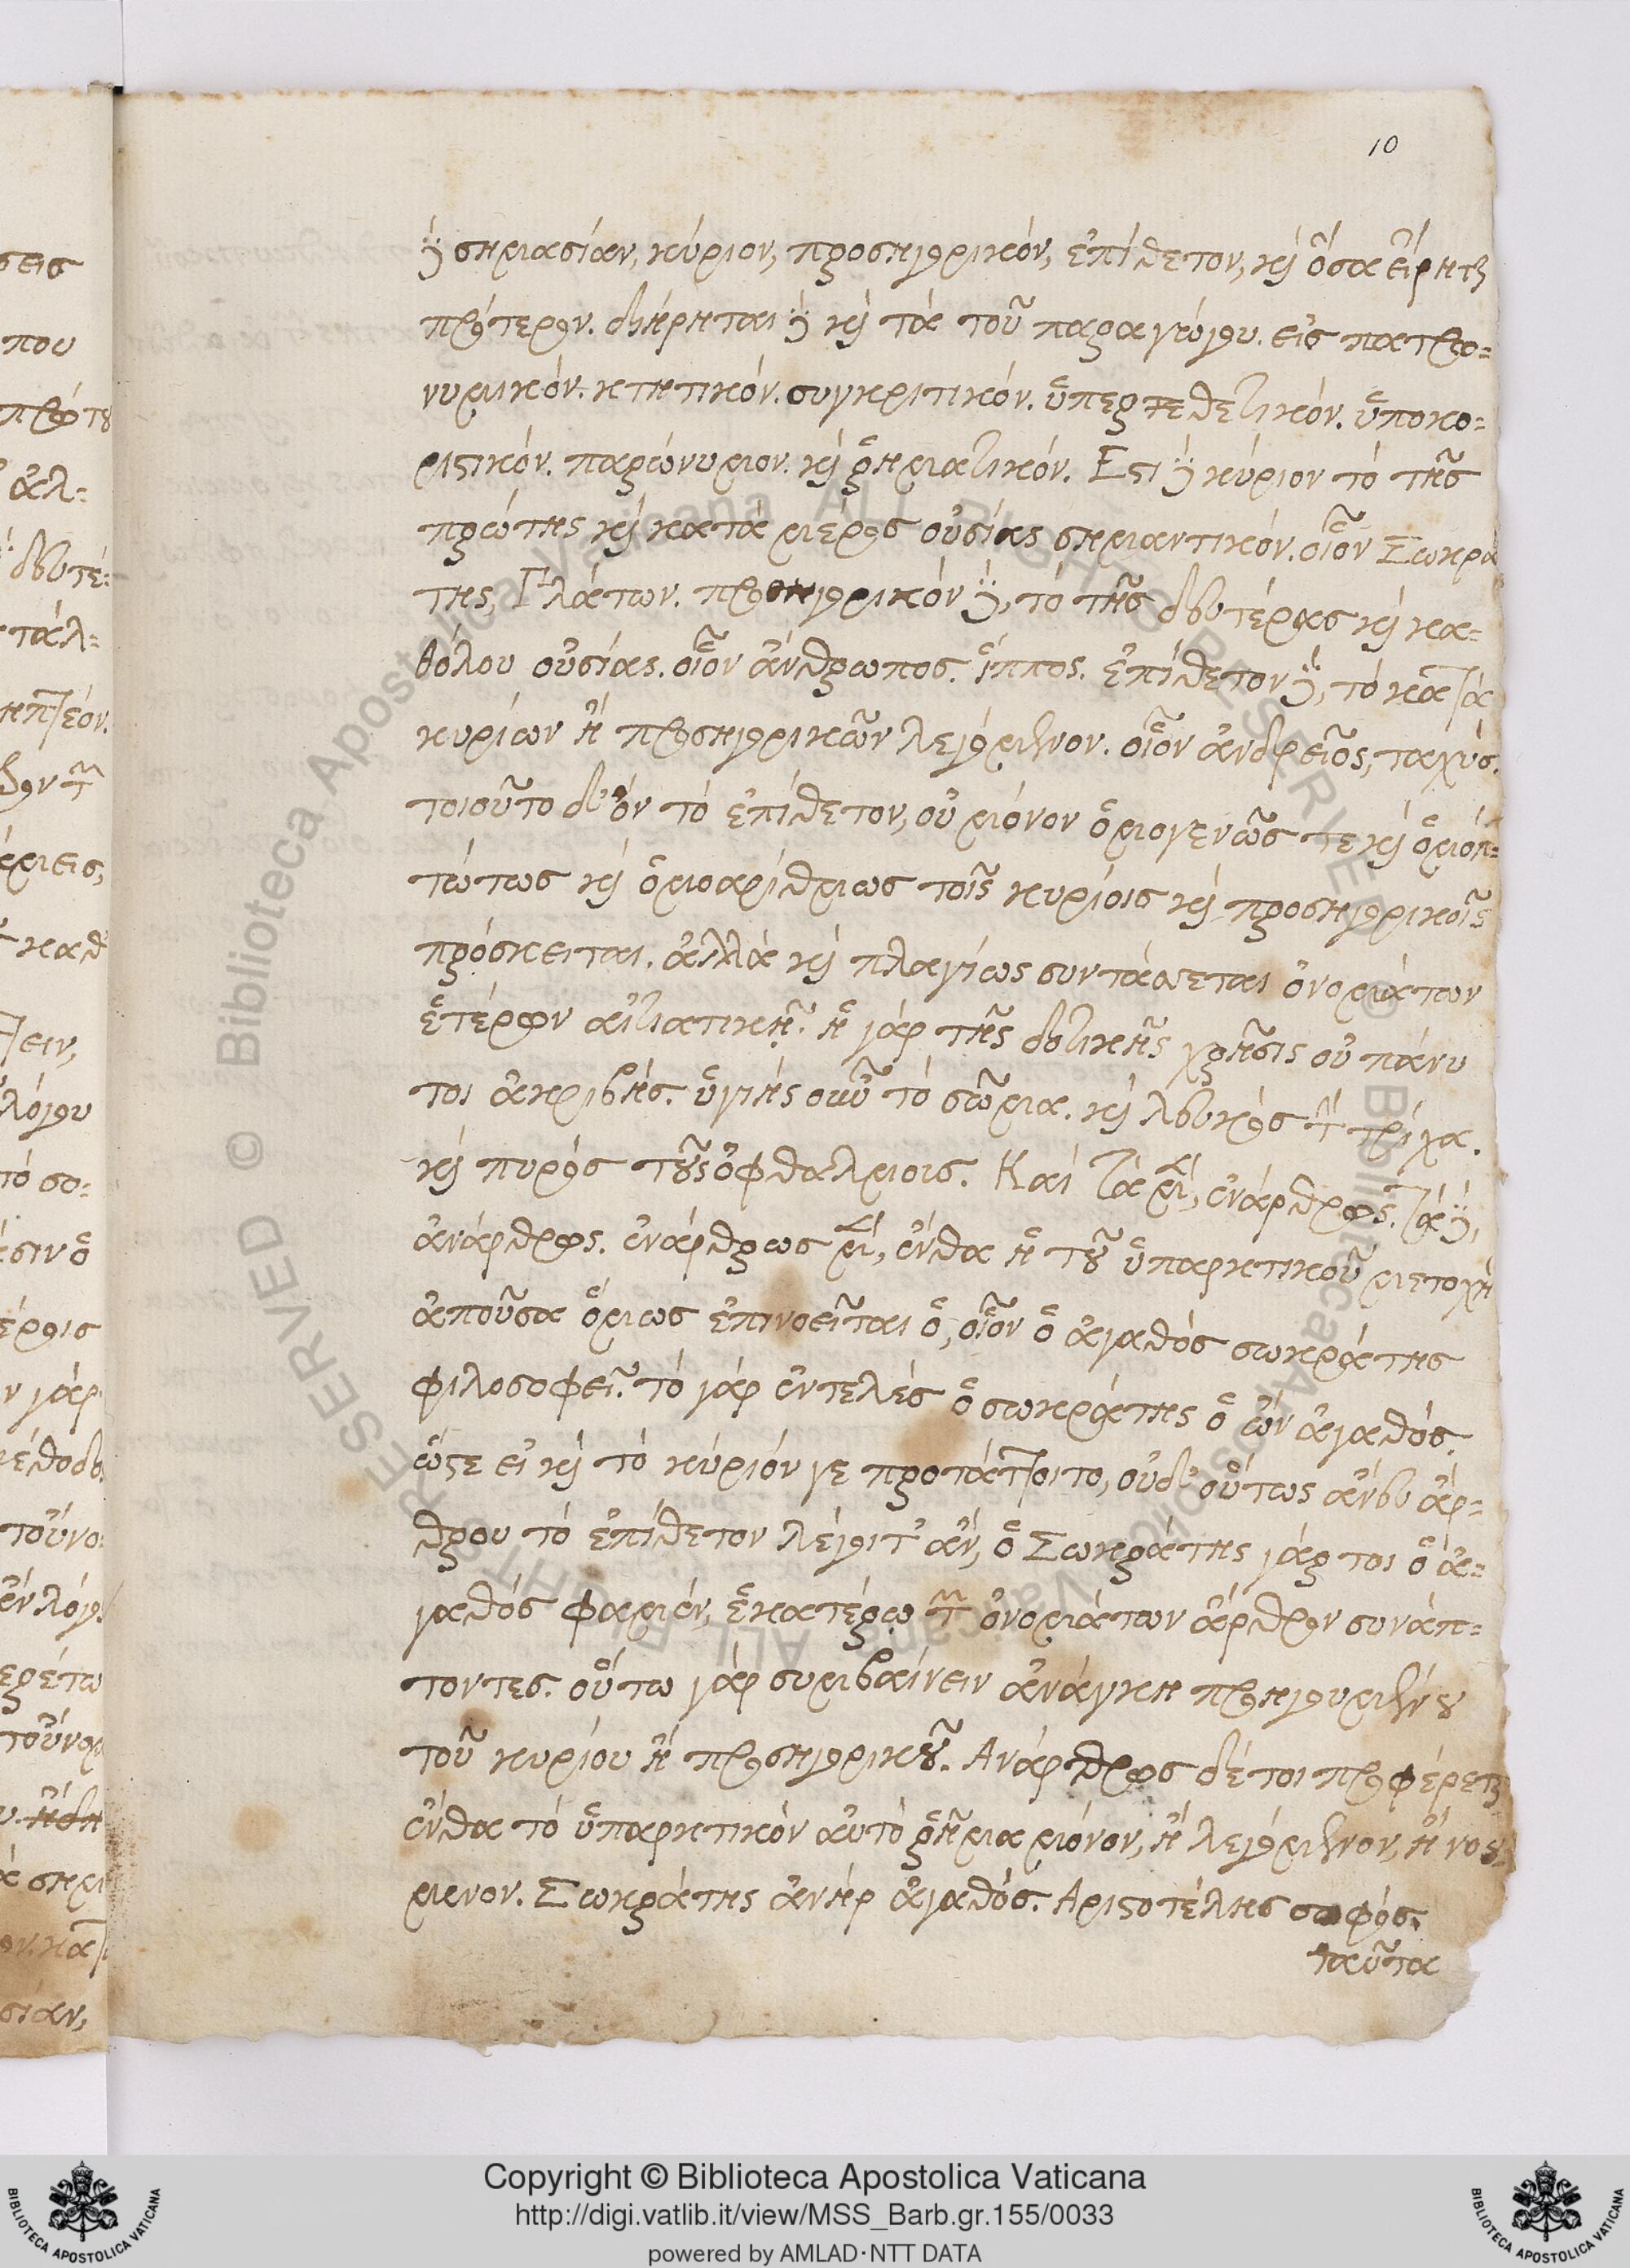 10
δὲ σημασίαν, κύριον, προσηγορικόν, ἐπίθετον, καὶ ὅσα εἴρηται
πρότερον. διῄρηται δὲ καὶ τὰ τοῦ παραγώγου. εἰς πατρω-
νυμικόν. κτητικόν. συγκριτικόν. ὑπερθετικόν. ὑποκο-
ριστικόν. παρώνυμον. καὶ ῥηματικόν. Εστι δὲ κύριον τὸ τῆς
πρώτης καὶ κατὰ μέρος οὐσίας σημαντικόν. οἷον Σωκρά
της, Πλάτων. προσηγορικὸν δὲ, τὸ τῆς δευτέρας καὶ κα-
θόλου οὐσίας. οἷον ἄνθρωπος. ἵππος. ἐπίθετον δὲ, τὸ κατὰ
κυρίων ἢ προσηγορικῶν λεγόμενον. οἷον ἀνδρεῖος, ταχύς.
τοιοῦτο δ' ὂν τὸ ἐπίθετον, οὐ μόνον ὁμογενῶς τε καὶ ὁμοπ-
τώτως καὶ ὁμοαρίθμως τοῖς κυρίοις καὶ προσηγορικοῖς
πρόσκειται. ἀλλὰ καὶ πλαγίως συντάσσεται ὀνομάτων
ἑτέρων αἰτιατικῇ. ἡ γὰρ τῆς δοτικῆς χρῆσις οὐ πάνυ
τοι ἀκριβής. ὑγιὴς τὸ σῶμα. καὶ λευκὸς τὴν τρίχα.
καὶ πυρὸς τοὺς ὀφθαλμοις. Καὶ τὰ μὲν, ἐνάρθρως. τὰ δὲ,
ἀνάρθρως. ἐνάρθρως μὲν, ἔνθα ἡ τοῦ ὑπαρκτικοῦ μετοχὴ
ἀποῦσα ὅμως ἐπινοεῖται ὁ, οἷον ὁ ἀγαθὸς σωκράτης
φιλοσοφεῖ. τὸ γὰρ ἐντελὲς ὁ σωκράτης ὁ ὢν ἀγαθός.
ὥστε εἰ καὶ τὸ κύριόν γε προτάττοιτο, οὐδ' οὕτως ἄνευ ἄρ-
θρου τὸ ἐπίθετον λέγοιτ' ἂν, ὁ Σωκράτης γάρ τοι ὁ ἀ-
γαθὸς φαμὲν, ἑκατέρῳ τῶν ὀνομάτων ἄρθρον συνάπ-
τοντες. οὕτω γὰρ συμβαίνειν ἀνάγκη προηγουμένου
τοῦ κυρίου ἢ προσηγορικοῦ. Ανάρθρως δέ τοι προφέρεται
ἔνθα τὸ ὑπαρκτικὸν αὐτὸ ῥῆμα μόνον, ἢ λεγόμενον, ἢ νοού-
μενον. Σωκράτης ἀνὴρ ἀγαθός. Αριστοτέλης σοφός.
ταῦτα
σεις
που
πρώτου
ἀλ-
δευτέ-
Copyright © Biblioteca Apostolica Vaticana
http://digi.vatlib.it/view/MSS_Barb.gr.155/0033
powered by AMLAD·NTT DATA